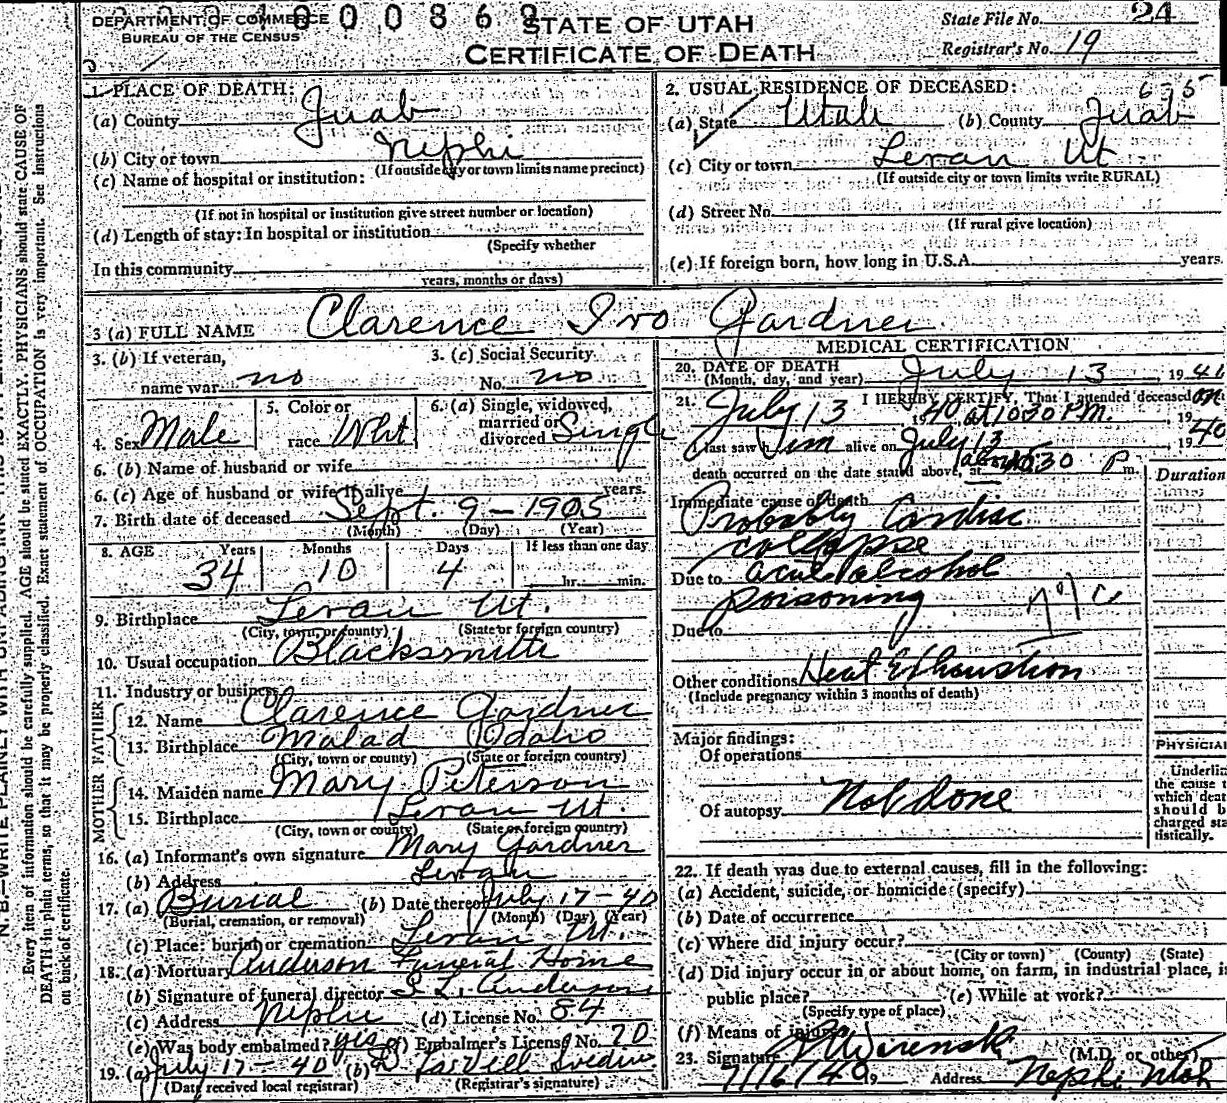 DEPARTMENT OF COMMERCE
BUREAU OF THE CENSUS
STATE OF UTAH
CERTIFICATE OF DEATH
State File No. 24
Registrar's No. 19
1. PLACE OF DEATH:
(a) County Juab
(b) City or town Nephi
(If outside city or town limits name precinct)
(c) Name of hospital or institution:
(If not in hospital or institution give street number or location)
(d) Length of stay: In hospital or institution
(Specify whether
In this community
years, months or days)
2. USUAL RESIDENCE OF DECEASED: 6-5
(a) State Utah (b) County Juab
(c) City or town Levan Ut
(If outside city or town limits write RURAL)
(d) Street No.
(If rural give location)
(e) If foreign born, how long in U.S.A. years.
3 (a) FULL NAME Clarence Ivo Gardner
3. (b) If veteran, name war no
3. (c) Social Security No. no
4. Sex Male
5. Color or race Wht
6. (a) Single, widowed, married or divorced Single
6. (b) Name of husband or wife
6. (c) Age of husband or wife if alive years.
7. Birth date of deceased Sept. 9 - 1905
(Month) (Day) (Year)
8. AGE Years Months Days If less than one day
34 10 4 hr. min.
9. Birthplace Levan Ut.
(City, town, or county) (State or foreign country)
10. Usual occupation Blacksmith
11. Industry or business
FATHER
12. Name Clarence Gardner
13. Birthplace Malad Idaho
(City, town or county) (State or foreign country)
MOTHER
14. Maiden name Mary Peterson
15. Birthplace Levan Ut.
(City, town or county) (State or foreign country)
16. (a) Informant's own signature Mary Gardner
(b) Address Levan
17. (a) Burial (b) Date thereof July 17-40
(Burial, cremation, or removal) (Month) (Day) (Year)
(c) Place: burial or cremation Levan Ut.
18. (a) Mortuary Anderson Funeral Home
(b) Signature of funeral director S L. Anderson
(c) Address Nephi (d) License No. 84
(e) Was body embalmed? yes (f) Embalmer's License No. 70
19. (a) July 17-40 (b)
(Date received local registrar) (Registrar's signature)
MEDICAL CERTIFICATION
20. DATE OF DEATH
(Month, day, and year) July 13 1940
21. I HEREBY CERTIFY, That I attended deceased on
July 13 1940 at 10:30 P.M. 19
last saw him alive on July 13 1940
death occurred on the date stated above, at about 10:30 P m.
Duration
Immediate cause of death
Probably Cardiac
collapse
Due to acute alcohol
poisoning
Due to
Other conditions Heat Exhaustion
(Include pregnancy within 3 months of death)
Major findings:
Of operations
Of autopsy Not done
PHYSICIA
Underlin
the cause t
which deat
should b
charged sta
tistically.
22. If death was due to external causes, fill in the following:
(a) Accident, suicide, or homicide (specify)
(b) Date of occurrence
(c) Where did injury occur?
(City or town) (County) (State)
(d) Did injury occur in or about home, on farm, in industrial place, i
public place? (e) While at work?
(Specify type of place)
(f) Means of injury
23. Signature (M.D. or other)
7/16/40 19 Address Nephi Utah
Every item of information should be carefully supplied. AGE should be stated EXACTLY. PHYSICIANS should state CAUSE OF
DEATH in plain terms, so that it may be properly classified. Exact statement of OCCUPATION is very important. See instructions
on back of certificate.